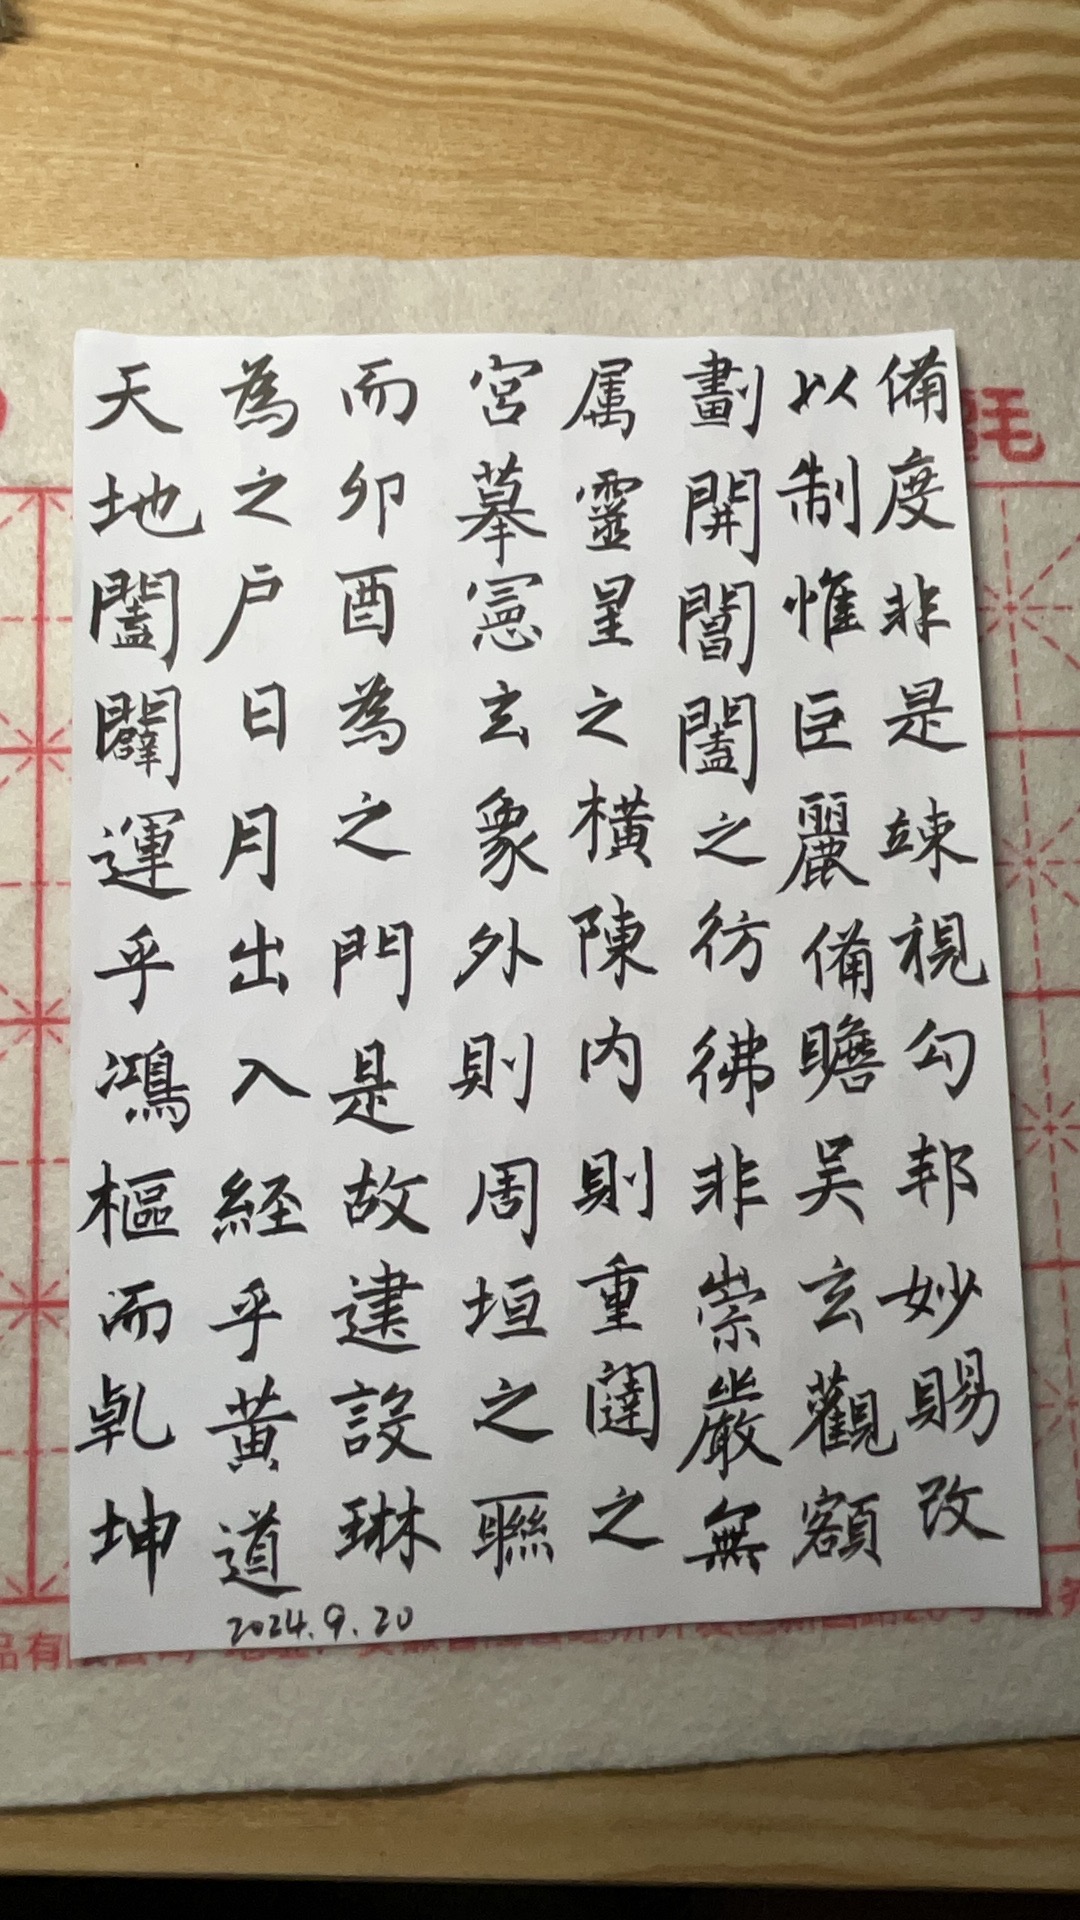 天地闔闢運乎鴻樞而乹坤
為之户日月出入経乎黃道
而卯酉為之門是故建設琳
宮摹憲玄象外則周垣之聯
属靈星之橫陳内則重闥之
劃開閶闔之彷彿非崇嚴無
以制惟巨麗備瞻吴玄觀額
備度非是竦視勾邦妙賜改
2024.9.20
毛